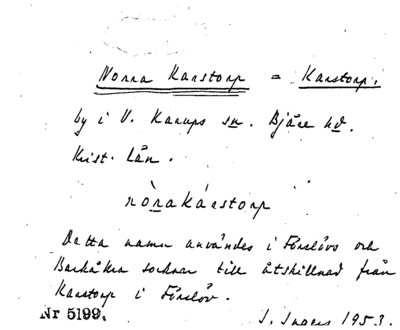 Norra Karstorp = Karstorp.
by i V. Karups sn. Bjäre hd.
Krist. Län.
nòrakárstorp
Detta namn användes i Förslövs och
Barkåkra socknar till åtskillnad från
Karstorp i Förslöv.
Nr 5199. I. Ingers 1953.